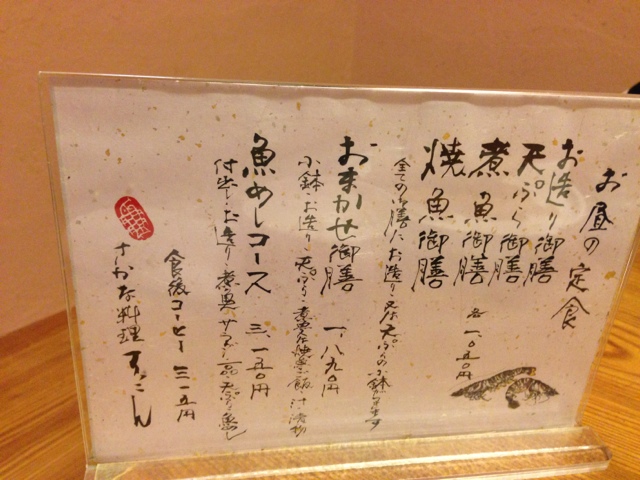 お昼の定食
お造り御膳
天ぷら御膳
煮魚御膳
焼魚御膳
各 一、〇五〇円
全ての御膳に、お造り又は天ぷらの小鉢が付きます
おまかせ御膳 一、八九〇円
小鉢 お造り 天ぷら 煮魚又は焼魚 ご飯 汁 漬物
魚めしコース 三、一五〇円
付出し お造り 煮魚 サラダ 天ぷら 魚めし
食後コーヒー 三一五円
さかな料理